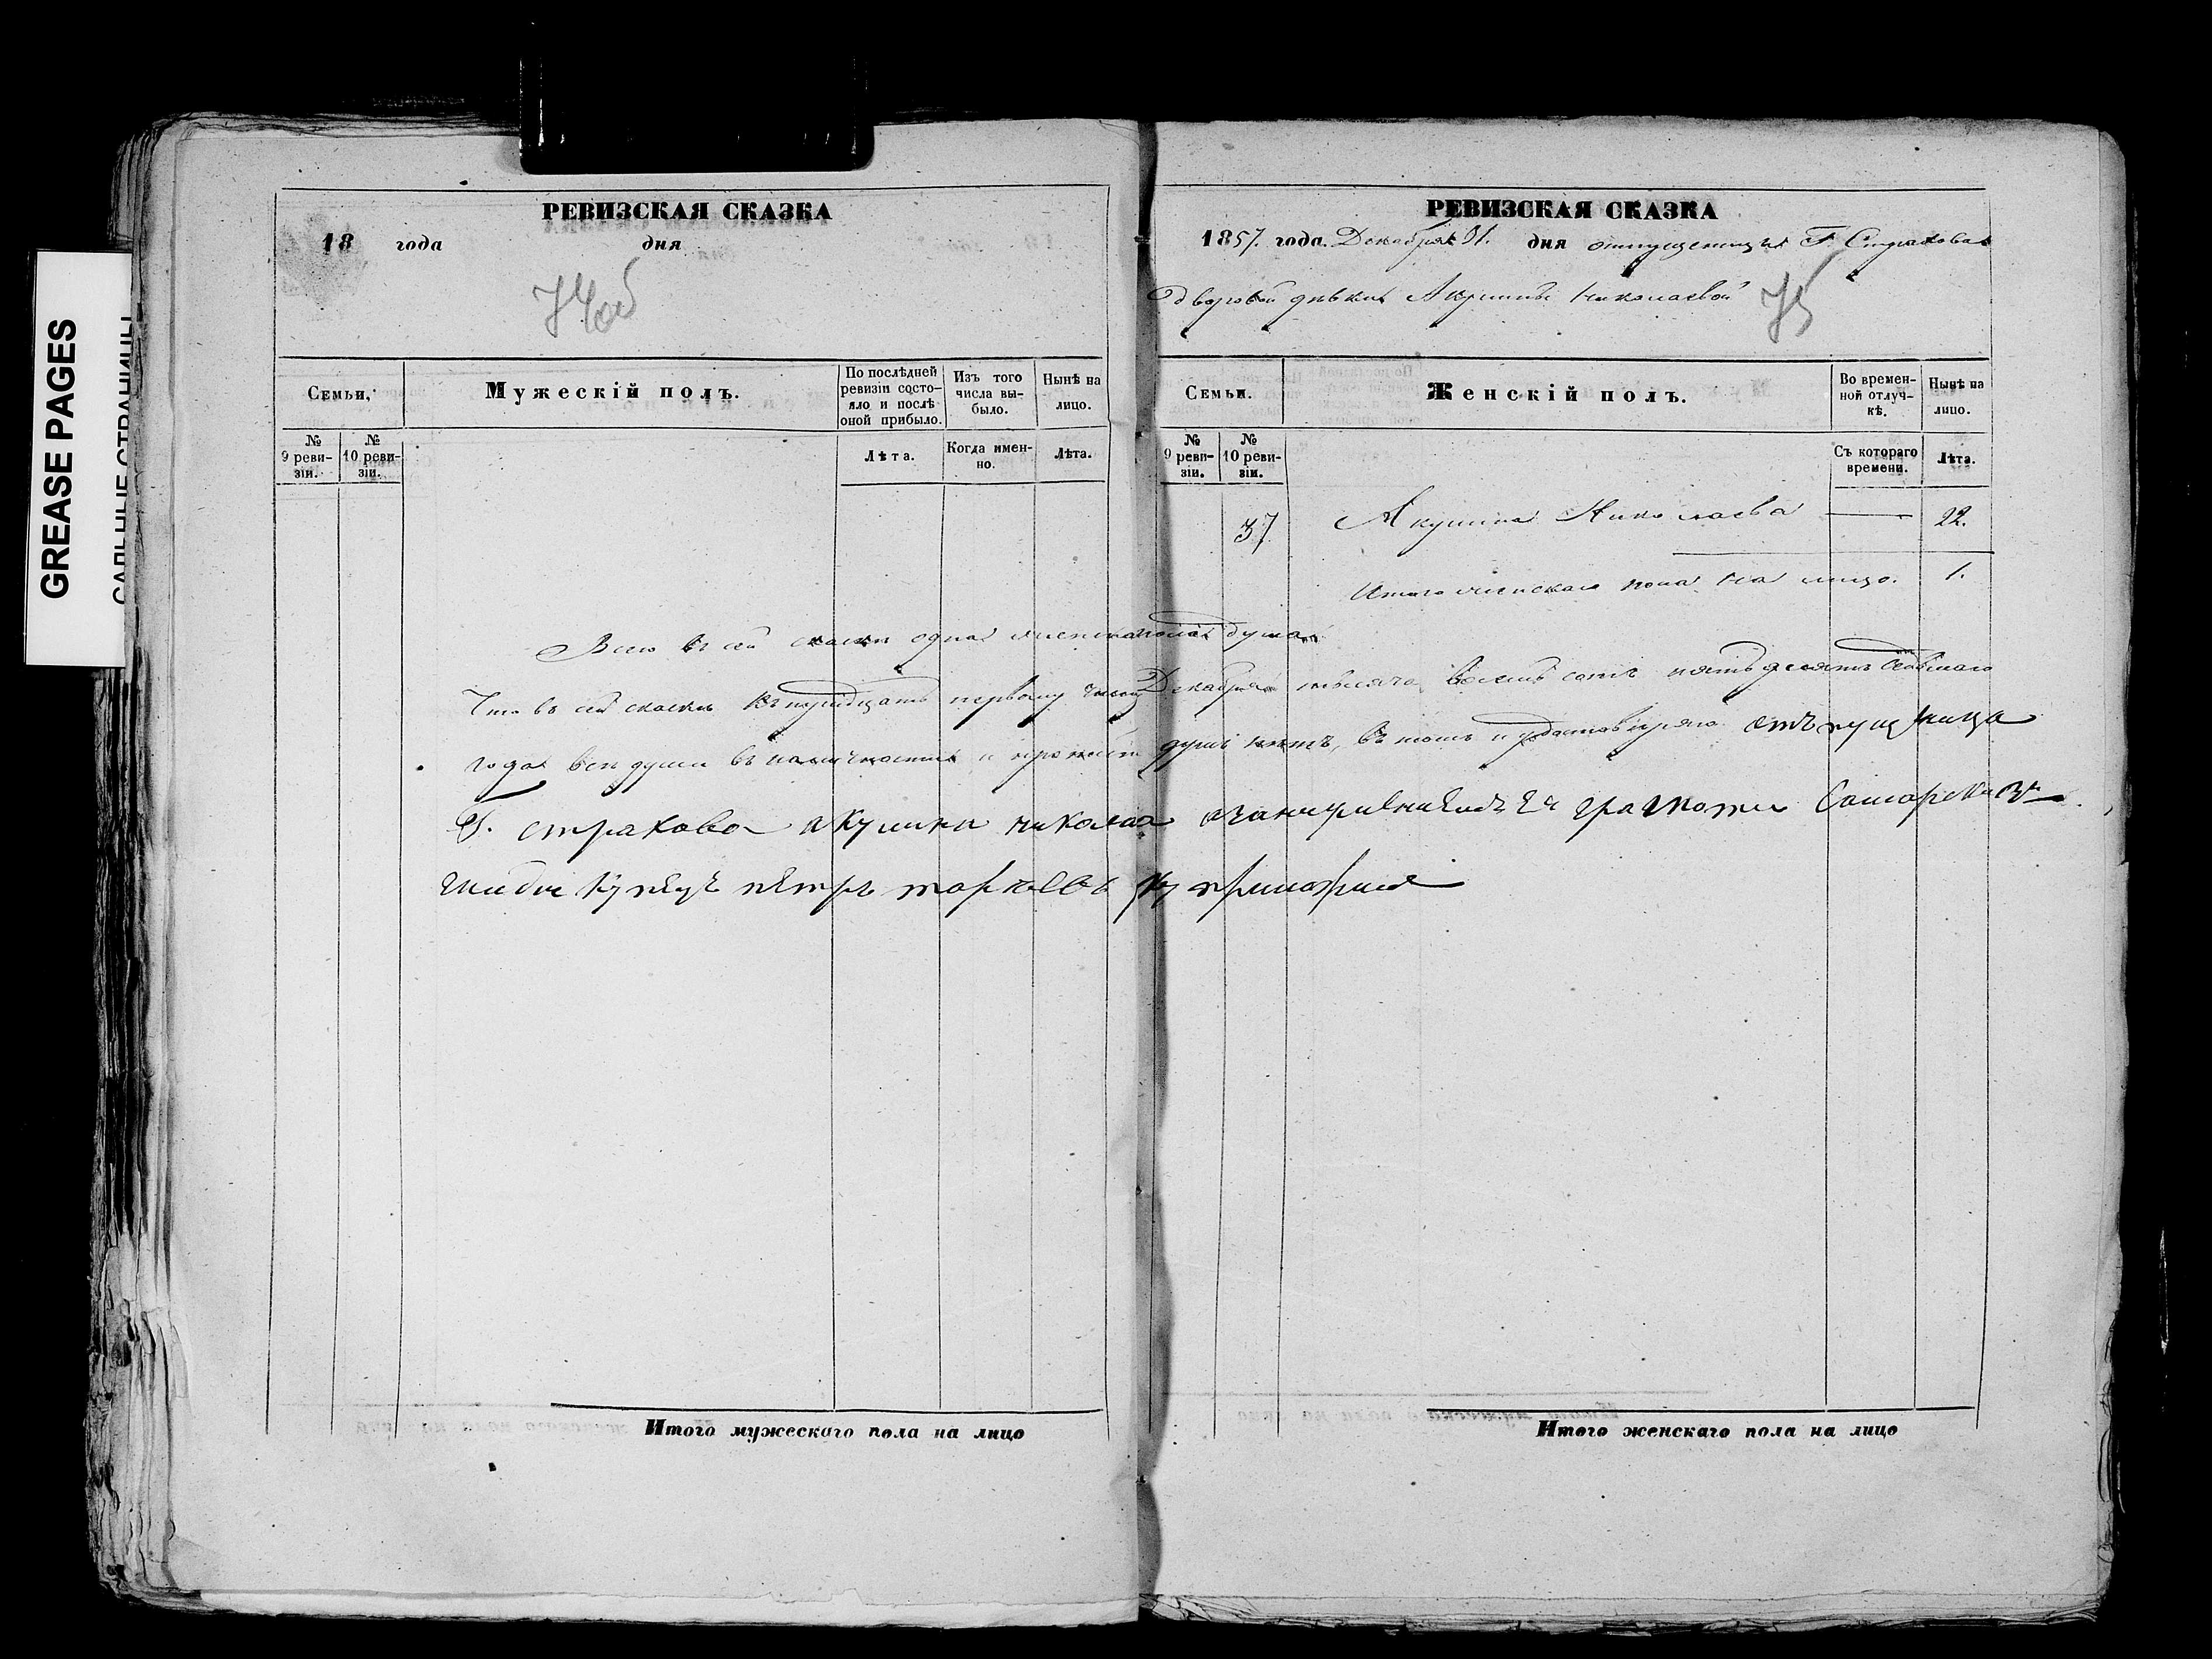 GREASE PAGES
САЛЬНЫЕ СТРАНИЦЫ
РЕВИЗСКАЯ СКАЗКА
18 года дня
74об
Семьи,
Мужескій полъ.
По послѣдней ревизіи состояло и послѣ оной прибыло.
Изъ того числа выбыло.
Нынѣ на лицо.
№ 9 ревизіи.
№ 10 ревизіи.
Лѣта.
Когда именно.
Лѣта.
РЕВИЗСКАЯ СКАЗКА
1857. года. Декабря 31. дня отпущеницы Г. Страхова
дворовой дѣвки Акулины Николаевой
75
Семьи.
Женскій полъ.
Во временной отлучкѣ.
Нынѣ на лицо.
№ 9 ревизіи.
№ 10 ревизіи.
Съ котораго времени.
Лѣта.
37 Акулина Николаева — 22.
Итого женскаго пола на лицо. 1.
Всего въ сей сказки одна женскаго пола душа
Что въ сей сказки къ тридцать первому числу Декабря тысяча восемь сотъ пятьдесятъ седьмаго
года всѣ души въ наличности и душъ нѣтъ, въ томъ и удостовѣряю отпущеница
Г. страхова акулина николаева грамоте Самарский
купецъ пѣтръ
Итого мужескаго пола на лицо
Итого женскаго пола на лицо